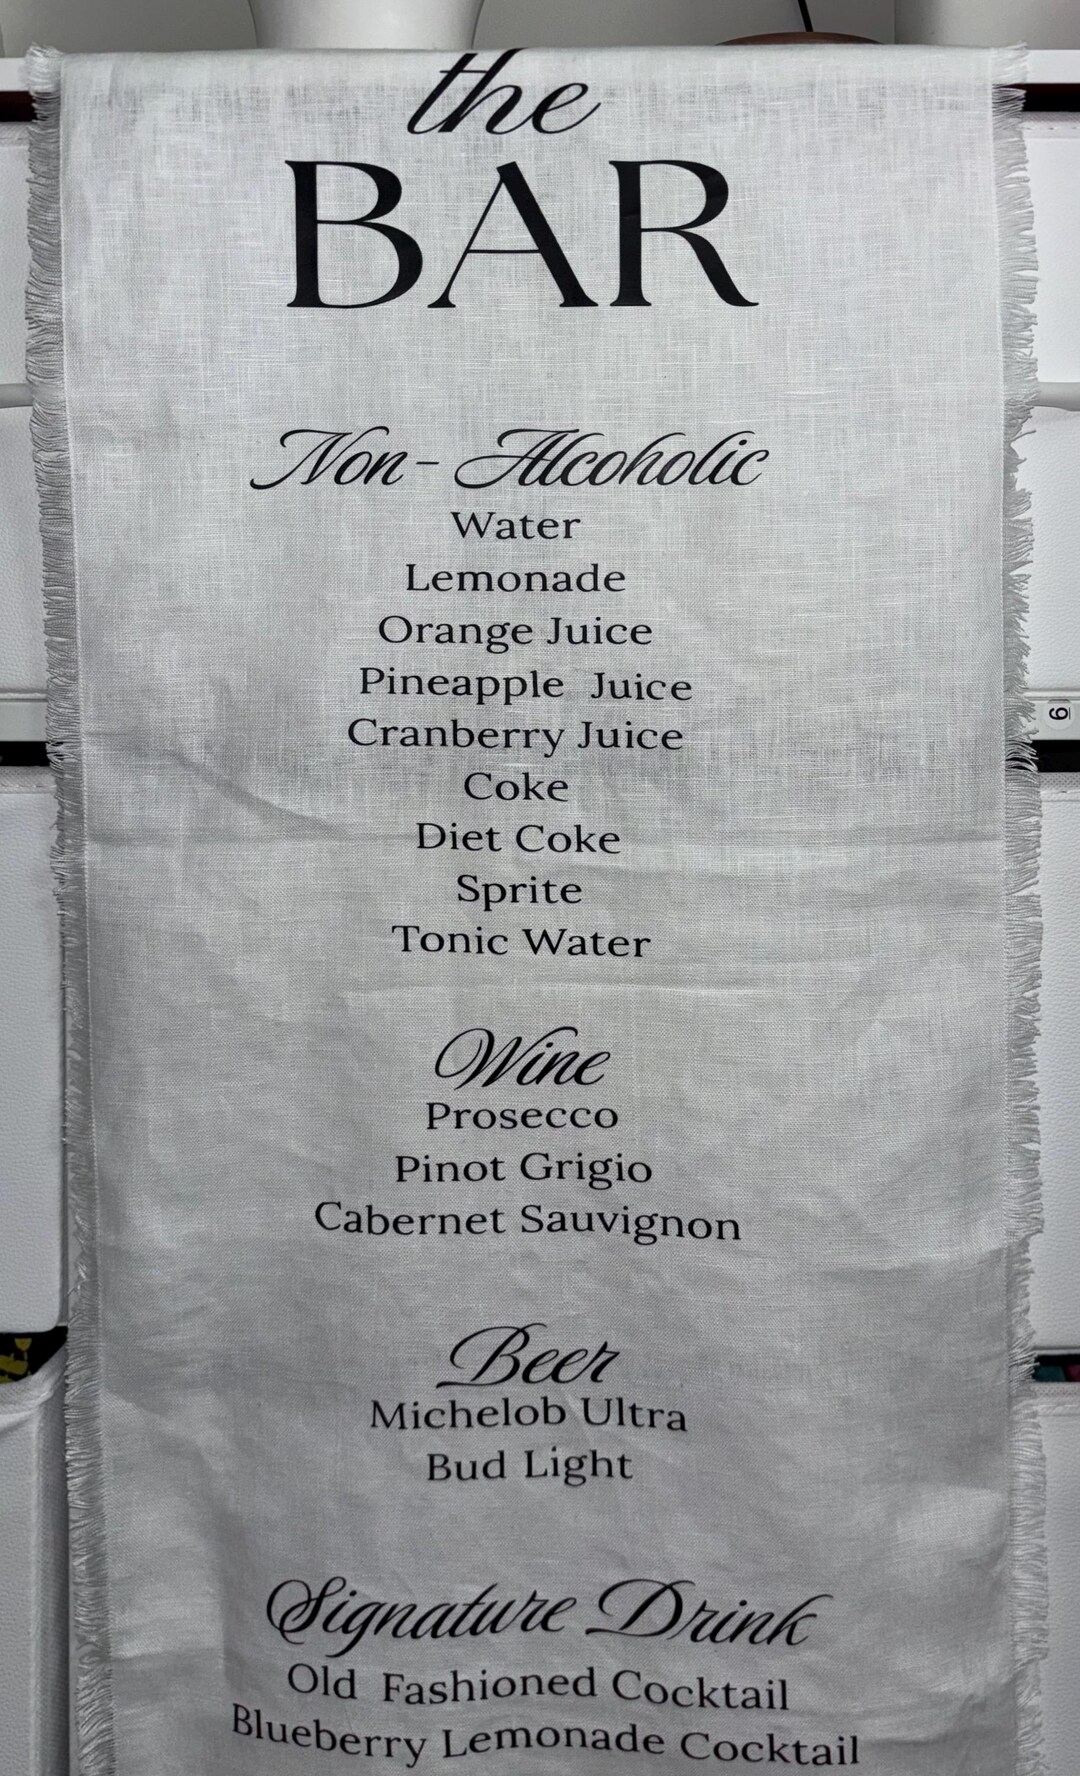 the
BAR
Non-Alcoholic
Water
Lemonade
Orange Juice
Pineapple Juice
Cranberry Juice
Coke
Diet Coke
Sprite
Tonic Water
Wine
Prosecco
Pinot Grigio
Cabernet Sauvignon
Beer
Michelob Ultra
Bud Light
Signature Drink
Old Fashioned Cocktail
Blueberry Lemonade Cocktail
6